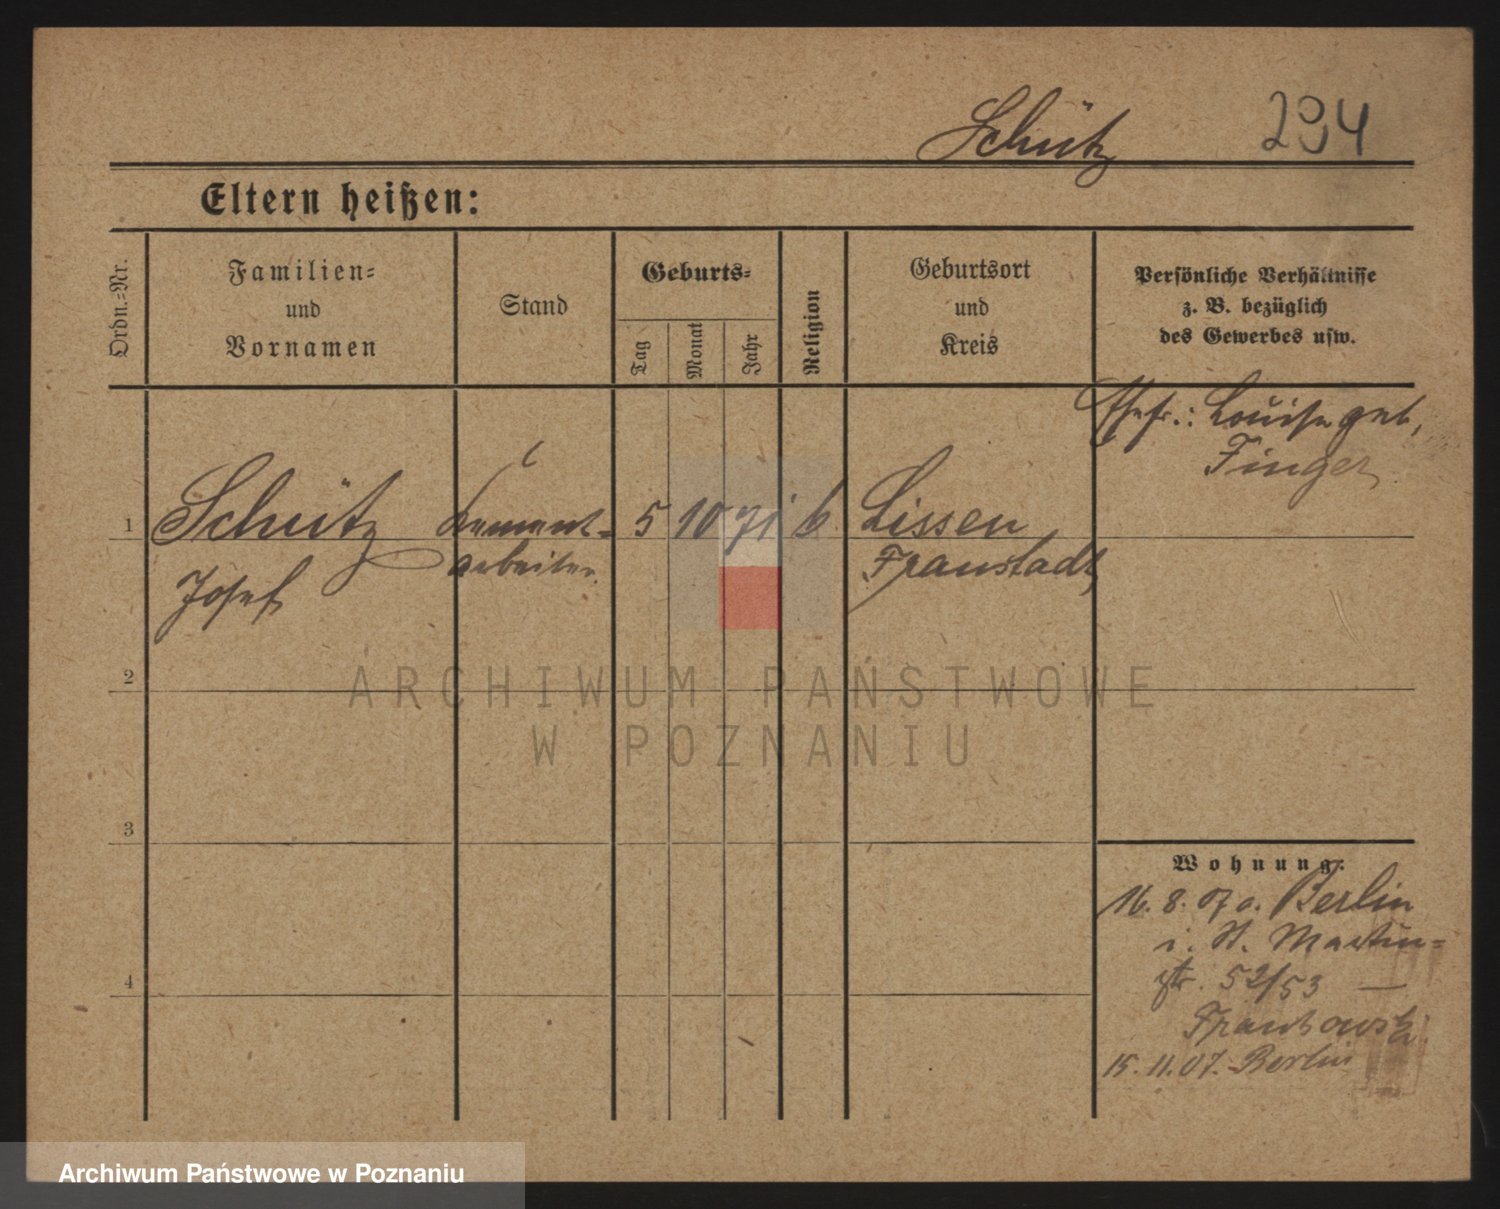 Schütz 294
Eltern heißen:
Ordn.=Nr.
Familien=
und
Vornamen
Stand
Geburts=
Tag
Monat
Jahr
Religion
Geburtsort
und
Kreis
Persönliche Verhältnisse
z. B. bezüglich
des Gewerbes usw.
Ehefr.: Louise geb.
Finger
1 Schütz Zement= 5 10 71 k Lissen
Josef arbeiter Fraustadt
2
ARCHIWUM PAŃSTWOWE
W POZNANIU
3
Wohnung:
16. 8. 07 a. Berlin
i. H. Martin=
4 str. 52/53 —
15. 11. 07. Berlin
Archiwum Państwowe w Poznaniu